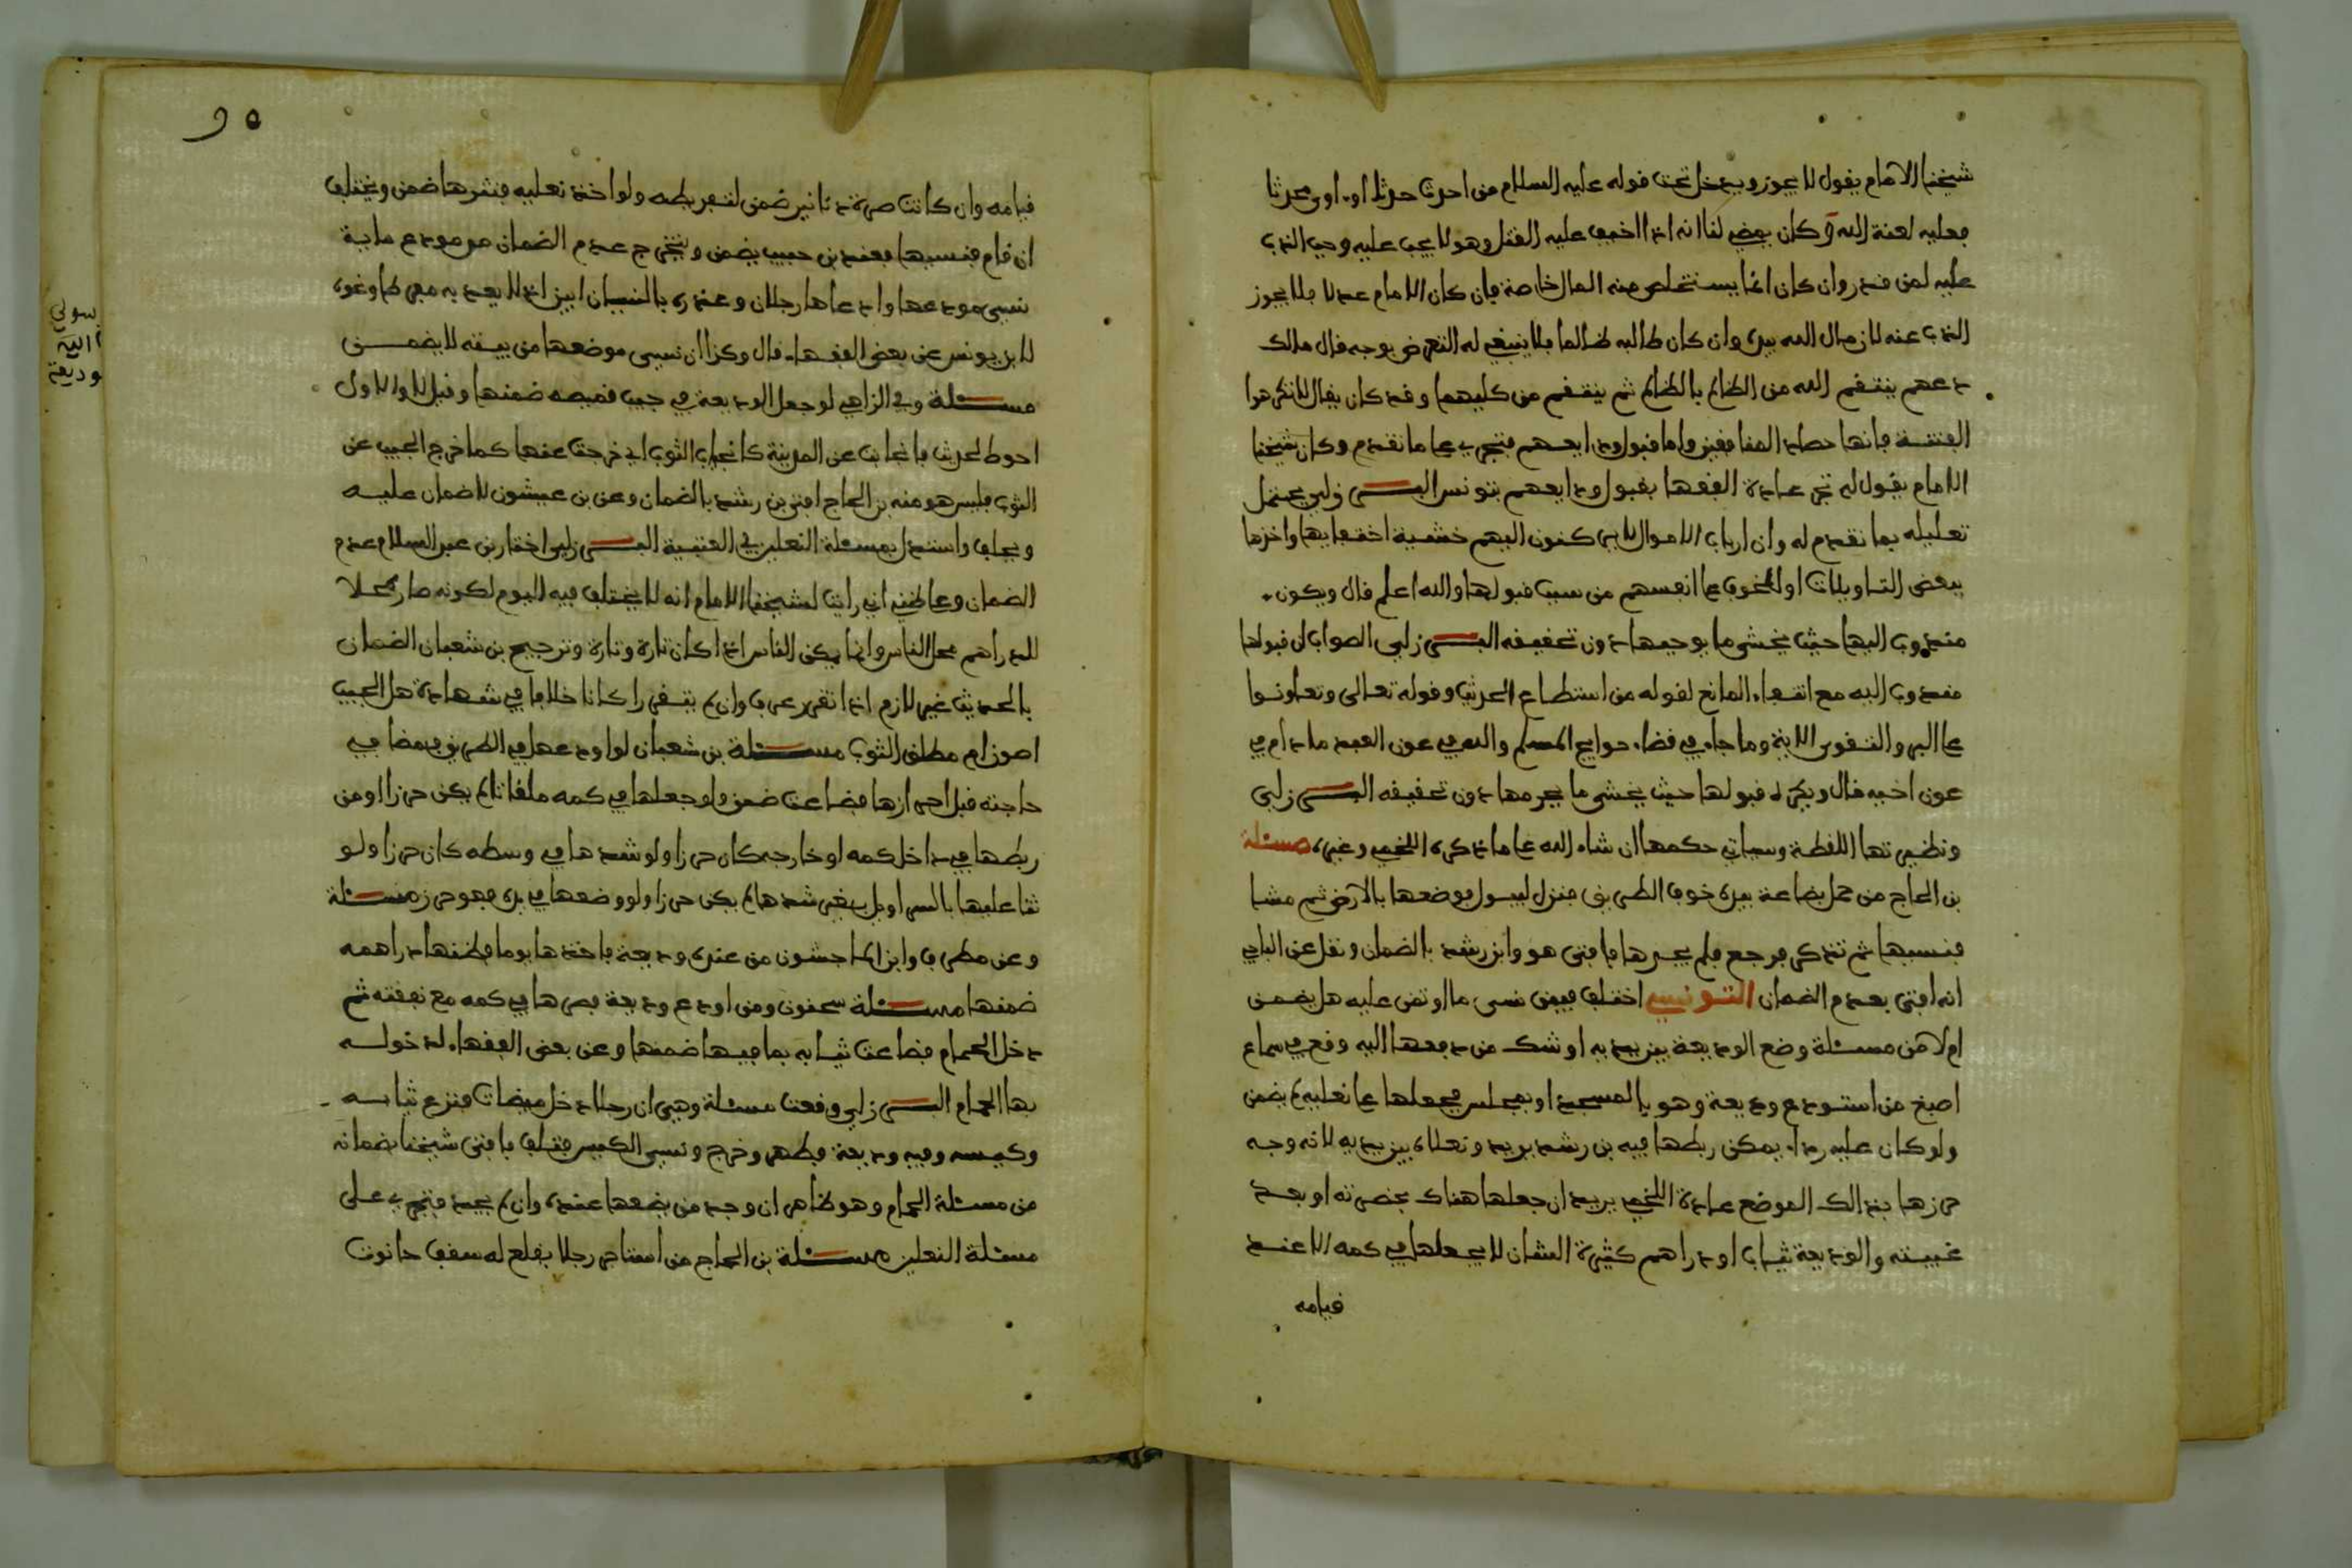 شيخنا الامام يقول لا يجوز ويدخل تحت قوله عليه السلام من احدث حدثا او اوى محدثا
فعليه لعنة الله وكان يمضي لنا انه اذا اخيف عليه القتل وهو لا يجب عليه وجب الذب
عليه لمن قدر وان كان انما يستخلص منه المال خاصة فان كان الامام عدلا فلا يجوز
الذب عنه لان مال الله بيده وان كان طالبه ظالما فلا ينبغي له التعرض بوجه قال مالك
دعهم ينتقم الله من الظالم بالظالم ثم ينتقم من كليهما وقد كان يقال لا تكرهوا
الفتنة فانها حصاد المنافقين واما قبول ودايعهم فتجري على ما تقدم وكان شيخنا
الامام يقول لم تجر عادة الفقها بقبول ودايعهم بتونس البـــرزلي يحتمل
تعليله بما تقدم له وان ارباب الاموال لا يركنون اليهم خشية اختفايها واخذها
ببعض التاويلات او الخوف على انفسهم من سبب قبولها والله اعلم قال ويكون
مندوب اليها حيث يخشى ما يوجبها دون تحقيقه البـــرزلي الصواب ان قبولها
مندوب اليه مع انتفاء المانع لقوله من استطاع الحديث وقوله تعالى وتعاونوا
على البر والتقوى الاية وما جاء في قضاء حوايج المسلم والله في عون العبد ما دام في
عون اخيه قال ويكره قبولها حيث يخشى ما يحرمها دون تحقيقه البـــرزلي
ونظيرتها اللقطة وسياتي حكمها ان شاء الله على ما ذكره اللخمي وغيره مسئلة
بن الحاج من حمل بضاعة بيده خوف الطريق فنزل ليبول فوضعها بالارض ثم مشا
فنسيها ثم تذكر فرجع فلم يجدها فافتى هو وابن رشد بالضمان ونقل عن الباجي
انه افتى بعدم الضمان التونسي اختلف فيمن نسى ما اوتمن عليه هل يضمن
ام لا من مسئلة وضع الوديعة بين يديه او شك من دفعها اليه وقع في سماع
اصبغ من استودع وديعة وهو بالمسجد او بمجلس فجعلها على نعليه لم يضمن
ولو كان عليه رداء يمكن ربطها فيه بن رشد يريد ونعلاه بين يديه لانه وجه
حرزها بذالك الموضع عادة اللخمي يريد ان جعلها هناك بحضرته او بعد
غيبته والوديعة ثياب او دراهم كثيرة الشان لا يجعلها في كمه الا عند
قيامه
٩٥
قيامه وان كانت صرة دنانير ضمن لتفريطه ولو اخذ نعليه فنثرها ضمن ويختلف
ان قام فنسيها فعند بن حبيب يضمن ويتخرج عدم الضمان من مودع ماية
نسي مودعها وادعاها رجلان وعذره بالنسيان ابين اذ لا يعد به مفرطا ونحوه
لابن يونس عن بعض الفقهاء قال وكذا ان نسي موضعها من بيته لا يضمـــن
مسئلة وفي الزاهي لو جعل الوديعة في جيب قميصه ضمنها وقيل لا والاول
احوط لحديث فانجابت عن المدينة كانجياب الثوب اي خرجت عنها كما خرج الجيب عن
الثوب فليس هو منه بن الحاج افتى بن رشد بالضمان وعن بن عيشون لا ضمان عليـه
ويحلف واستدل بمسئلة النعلين في العتبية البـــرزلي اختار بن عبد السلام عدم
الضمان وعلى ظني اني رايت لشيخنا الامام انه لا يختلف فيه اليوم لكونه صار محلا
للدراهم محل الناس وانما يمكن الناس اذا كان تارة وتارة وترجيح بن شعبان الضمان
بالحديث غير لازم اذا تقرر عرف وان لم يتقرر اكانا خلافا في شهادة هل الجيب
اصون ام مطلق الثوب مســئلة بن شعبان لو اودعها في الطريق فمضا في
حاجته قبل احرازها فضاعت ضمن ولو جعلها في كمه ملقاة لم يكن حرزا او من
ربطها في داخل كمه او خارجه كان حرزا ولو شدها في وسطه كان حرزا ولـو
ثنا عليها بالسراويل بغير شدها لم يكن حرزا ولو وضعها في يده فهو حرز مســئلة
وعن مطرف وابن الماجشون من عنده وديعة فاخذها يوما فظنها دراهمه
ضمنها مســئلة سحنون ومن اودع وديعة فصرها في كمه مع نفقته ثم
دخل الحمام فضاعت ثيابه بما فيها ضمنها وعن بعض الفقهاء لدخولـه
بها الحمام البـــرزلي وقعت مسئلة وهي ان رجلا دخل ميضات فنزع ثيابـه
وكيسه وفيه وديعة فطهر وخرج ونسي الكيس فتلف فافتى شيخنا بضمانه
من مسئلة الحمام وهو ظاهر ان وجد من يضعها عنده وان لم يجد فتجري على
مسئلة النعلين مســئلة بن الحاج من استاجر رجلا يقلع له سقف حانوت
وديعة